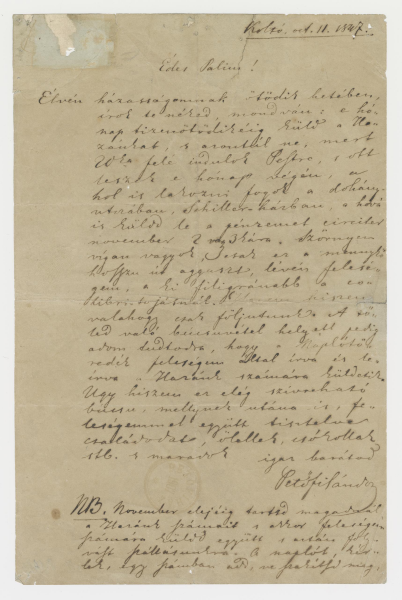 Koltó, oct. 11. 1847.
Édes Palim!
Élvén házasságomnak ötödik hetében,
írok te néked mondván: e hó-
nap tizenötödikéig küldd a Ha-
zánkat, s azontúl ne, mert
20ka felé indulok Pestre, s ott
leszek e hónap végén, a
hol is lakozni fogok a dohány-
utczában, Schiller-házban, a hová
is küldd le a pénzemet circiter
november 2 vagy 3kára. Szörnyen
vigan vagyok, csak ez a mennykő
hosszu út aggaszt, lévén felesé-
gem, a ki filigránabb a
hiszem
valahogy csak följutunk. A tő-
led való bucsuvétel helyett pedig
adom tudtodra, hogy a Naplótöre-
dék feleségem által írva és le-
írva a Hazánk számára küldetik.
Ugy hiszem ez elég szivreható
bucsu, mellynek utána is, fe-
leségemmel együtt tisztelve
családodat, ölellek, csókollak
stb. s maradok igaz barátod
Petőfi Sándor
NB. November elejéig tartsd magadnál
a Hazánk számait s akkor feleségem
számára küldd együtt s aztán foly-
vást szállásunkra. A naplót, kér-
lek, egy számban add, ne szakítsd meg.